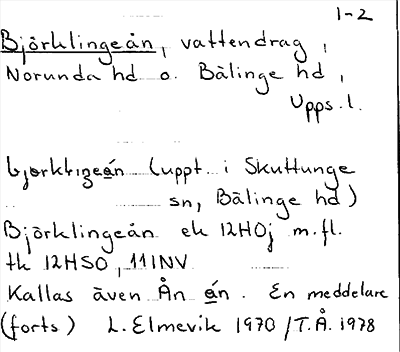 1-2
Björklingeån, vattendrag,
Norunda hd o. Bälinge hd,
Upps. l.
(uppt. i Skuttunge
sn, Bälinge hd)
Björklingeån ek 12HOj m.fl.
tk 12HSO, 11INV
Kallas även Ån án. En meddelare
(forts) L. Elmevik 1970 / T.Å. 1978